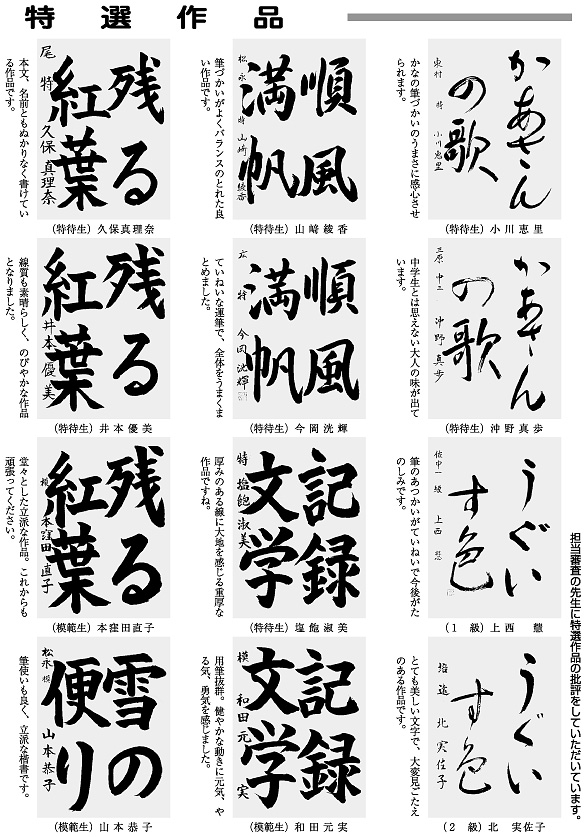 特選作品
担当審査の先生に特選作品の批評をしていただいています。
かあさん
の歌
東村 特 小川恵里
かなの筆づかいのうまさに感心させ
られます。
(特待生) 小川恵里
順風
満帆
松永 特 山崎綾香
筆づかいがよくバランスのとれた良
い作品です。
(特待生) 山崎綾香
残る
紅葉
尾 特 久保真理奈
本文、名前ともぬかりなく書けてい
る作品です。
(特待生) 久保真理奈
かあさん
の歌
三原 中二 沖野真歩
中学生とは思えない大人の味が出て
います。
(特待生) 沖野真歩
順風
満帆
広 特 今岡洸輝
ていねいな運筆で、全体をうまくま
とめました。
(特待生) 今岡洸輝
残る
紅葉
井本優美
線質も素晴らしく、のびやかな作品
となりました。
(特待生) 井本優美
うぐい
す色
中一 級 上西
筆のあつかいがていねいで今後がた
のしみです。
(1級) 上西
記録
文学
特 塩飽淑美
厚みのある線に大地を感じる重厚な
作品ですね。
(特待生) 塩飽淑美
残る
紅葉
模 本窪田直子
堂々とした立派な作品。これからも
頑張ってください。
(模範生) 本窪田直子
うぐい
す色
北実佐子
とても美しい文字で、大変見ごたえ
のある作品です。
(2級) 北 実佐子
記録
文学
模 和田元実
用筆抜群。健やかな動きに元気、や
る気、勇気を感じました。
(模範生) 和田元実
雪の
便り
松永 模 山本恭子
筆使いも良く、立派な楷書です。
(模範生) 山本恭子